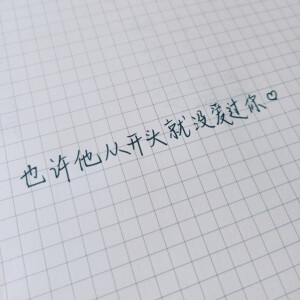 也许他从开头就没爱过你♡